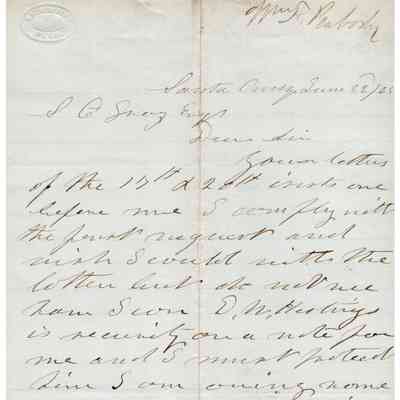 Wm F. Peabody
Santa Cruz June 22/
S C Gray Esqr
Dear Sir
Your letters
of the 17th & 20th insts are
before me I comply with
the first request and
wish I could with the
latter but do not see
how I can E. W. Hastings
is security on a note for
me and I must protect
him I am owing some